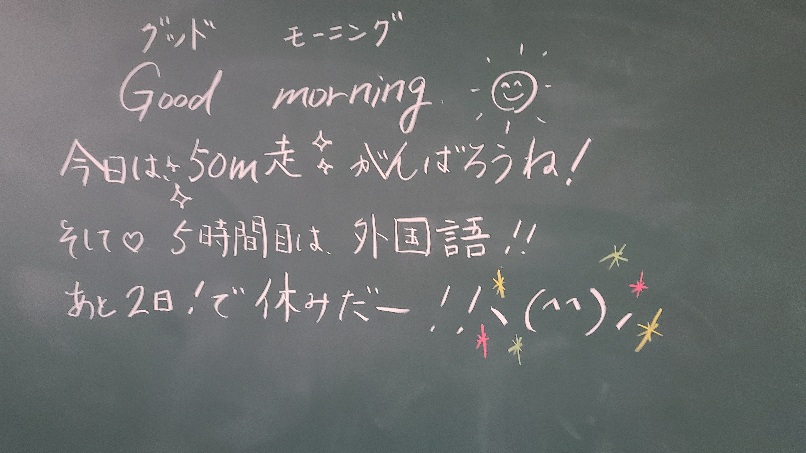 グッド モーニング
Good morning
今日は、50m走 がんばろうね!
そして♡ 5時間目は、外国語!!
あと2日!で休みだー!!ヽ(^^)ノ